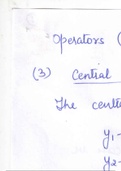 Operators (
(3) Central
The cent
y₁-
y₂-